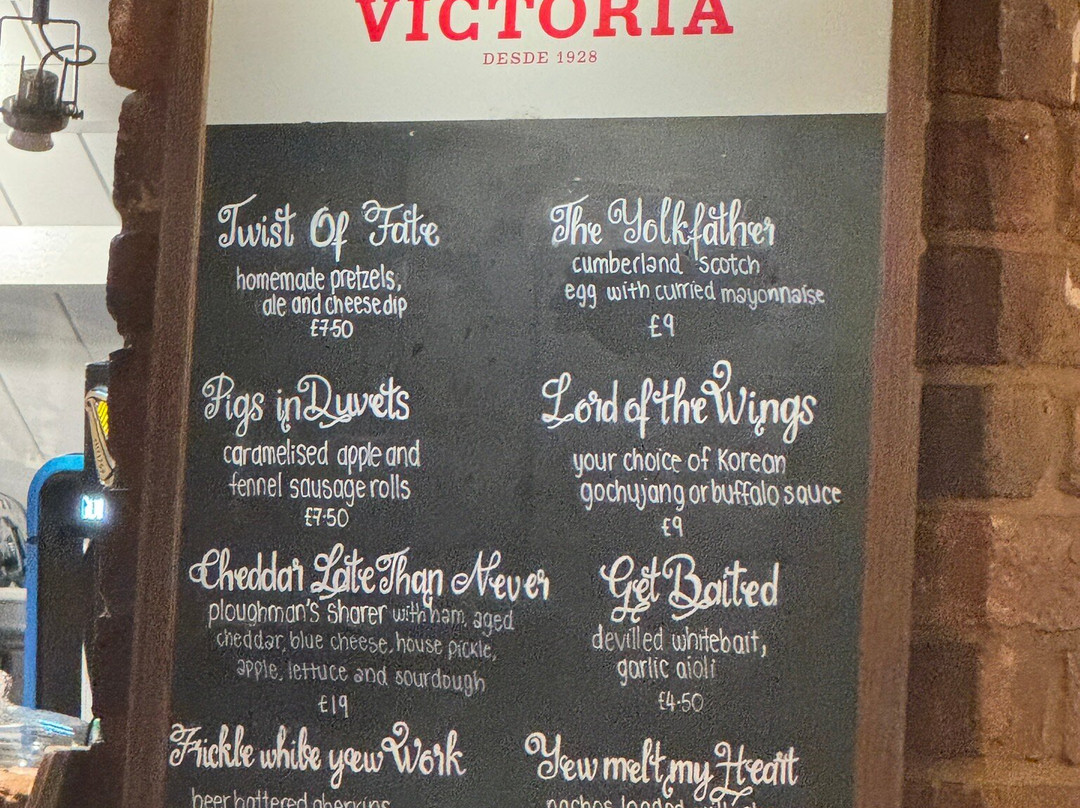 VICTORIA
DESDE 1928
Twist Of Fate
homemade pretzels,
ale and cheese dip
£7.50
Pigs in Duvets
caramelised apple and
fennel sausage rolls
£7.50
Cheddar Late Than Never
ploughman's sharer with ham, aged
cheddar, blue cheese, house pickle,
apple, lettuce and sourdough
£19
Frickle while yew Work
beer battered gherkins
The Yolkfather
cumberland scotch
egg with curried mayonnaise
£9
Lord of the Wings
your choice of Korean
gochujang or buffalo sauce
£9
Get Baited
devilled whitebait,
garlic aioli
£4.50
Yew melt my Heart
nachos loaded with